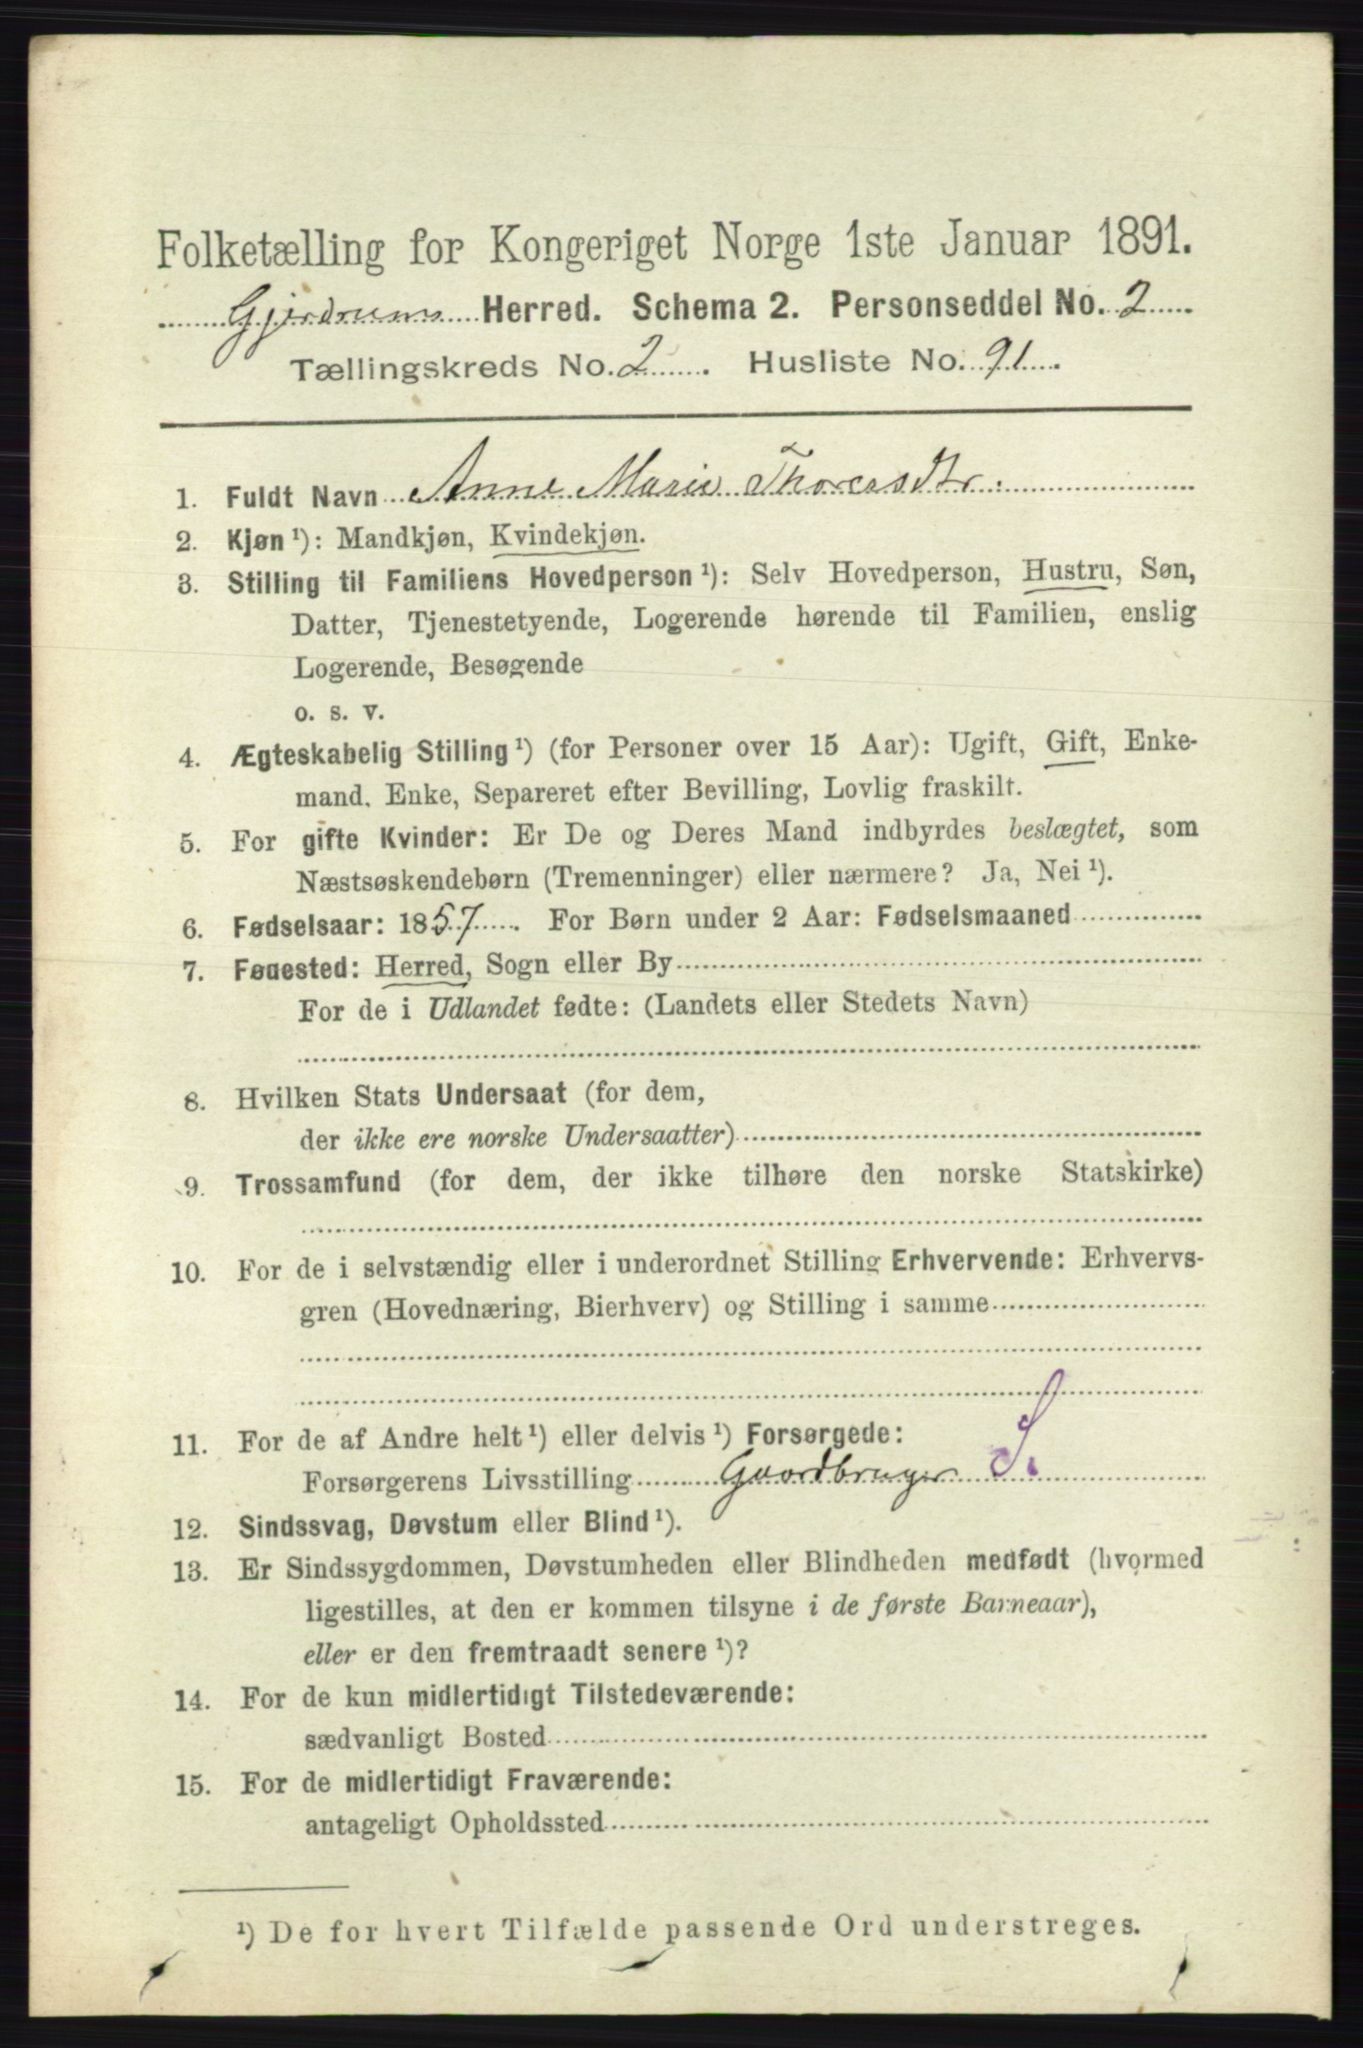 Folketælling for Kongeriget Norge 1ste Januar 1891.
Gjerdrum Herred. Schema 2. Personseddel No. 2
Tællingskreds No. 2. Husliste No. 91.
1. Fuldt Navn Anne Marie
2. Kjøn ¹): Mandkjøn, Kvindekjøn.
3. Stilling til Familiens Hovedperson ¹): Selv Hovedperson, Hustru, Søn,
Datter, Tjenestetyende, Logerende hørende til Familien, enslig
Logerende, Besøgende
o. s. v.
4. Ægteskabelig Stilling ¹) (for Personer over 15 Aar): Ugift, Gift, Enke-
mand. Enke, Separeret efter Bevilling, Lovlig fraskilt.
5. For gifte Kvinder: Er De og Deres Mand indbyrdes beslægtet, som
Næstsøskendebørn (Tremenninger) eller nærmere? Ja, Nei ¹).
6. Fødselsaar: 1857. For Børn under 2 Aar: Fødselsmaaned
7. Fødested: Herred, Sogn eller By
For de i Udlandet fødte: (Landets eller Stedets Navn)
8. Hvilken Stats Undersaat (for dem,
der ikke ere norske Undersaatter)
9. Trossamfund (for dem, der ikke tilhøre den norske Statskirke)
10. For de i selvstændig eller i underordnet Stilling Erhvervende: Erhvervs-
gren (Hovednæring, Bierhverv) og Stilling i samme
11. For de af Andre helt ¹) eller delvis ¹) Forsørgede:
Forsørgerens Livsstilling Gaardbruger S.
12. Sindssvag, Døvstum eller Blind ¹).
13. Er Sindssygdommen, Døvstumheden eller Blindheden medfødt (hvormed
ligestilles, at den er kommen tilsyne i de første Barneaar),
eller er den fremtraadt senere ¹)?
14. For de kun midlertidigt Tilstedeværende:
sædvanligt Bosted
15. For de midlertidigt Fraværende:
antageligt Opholdssted
¹) De for hvert Tilfælde passende Ord understreges.